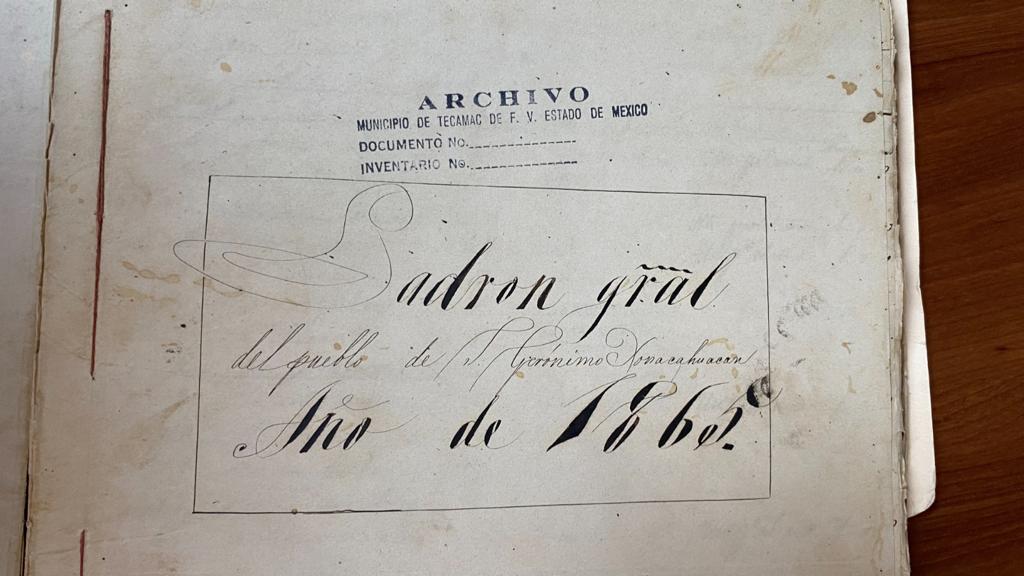 ARCHIVO
MUNICIPIO DE TECAMAC DE F. V. ESTADO DE MEXICO
DOCUMENTO No.
INVENTARIO No.
Padron gral
del pueblo de S. Geronimo Xonacahuacan
Año de 1865.